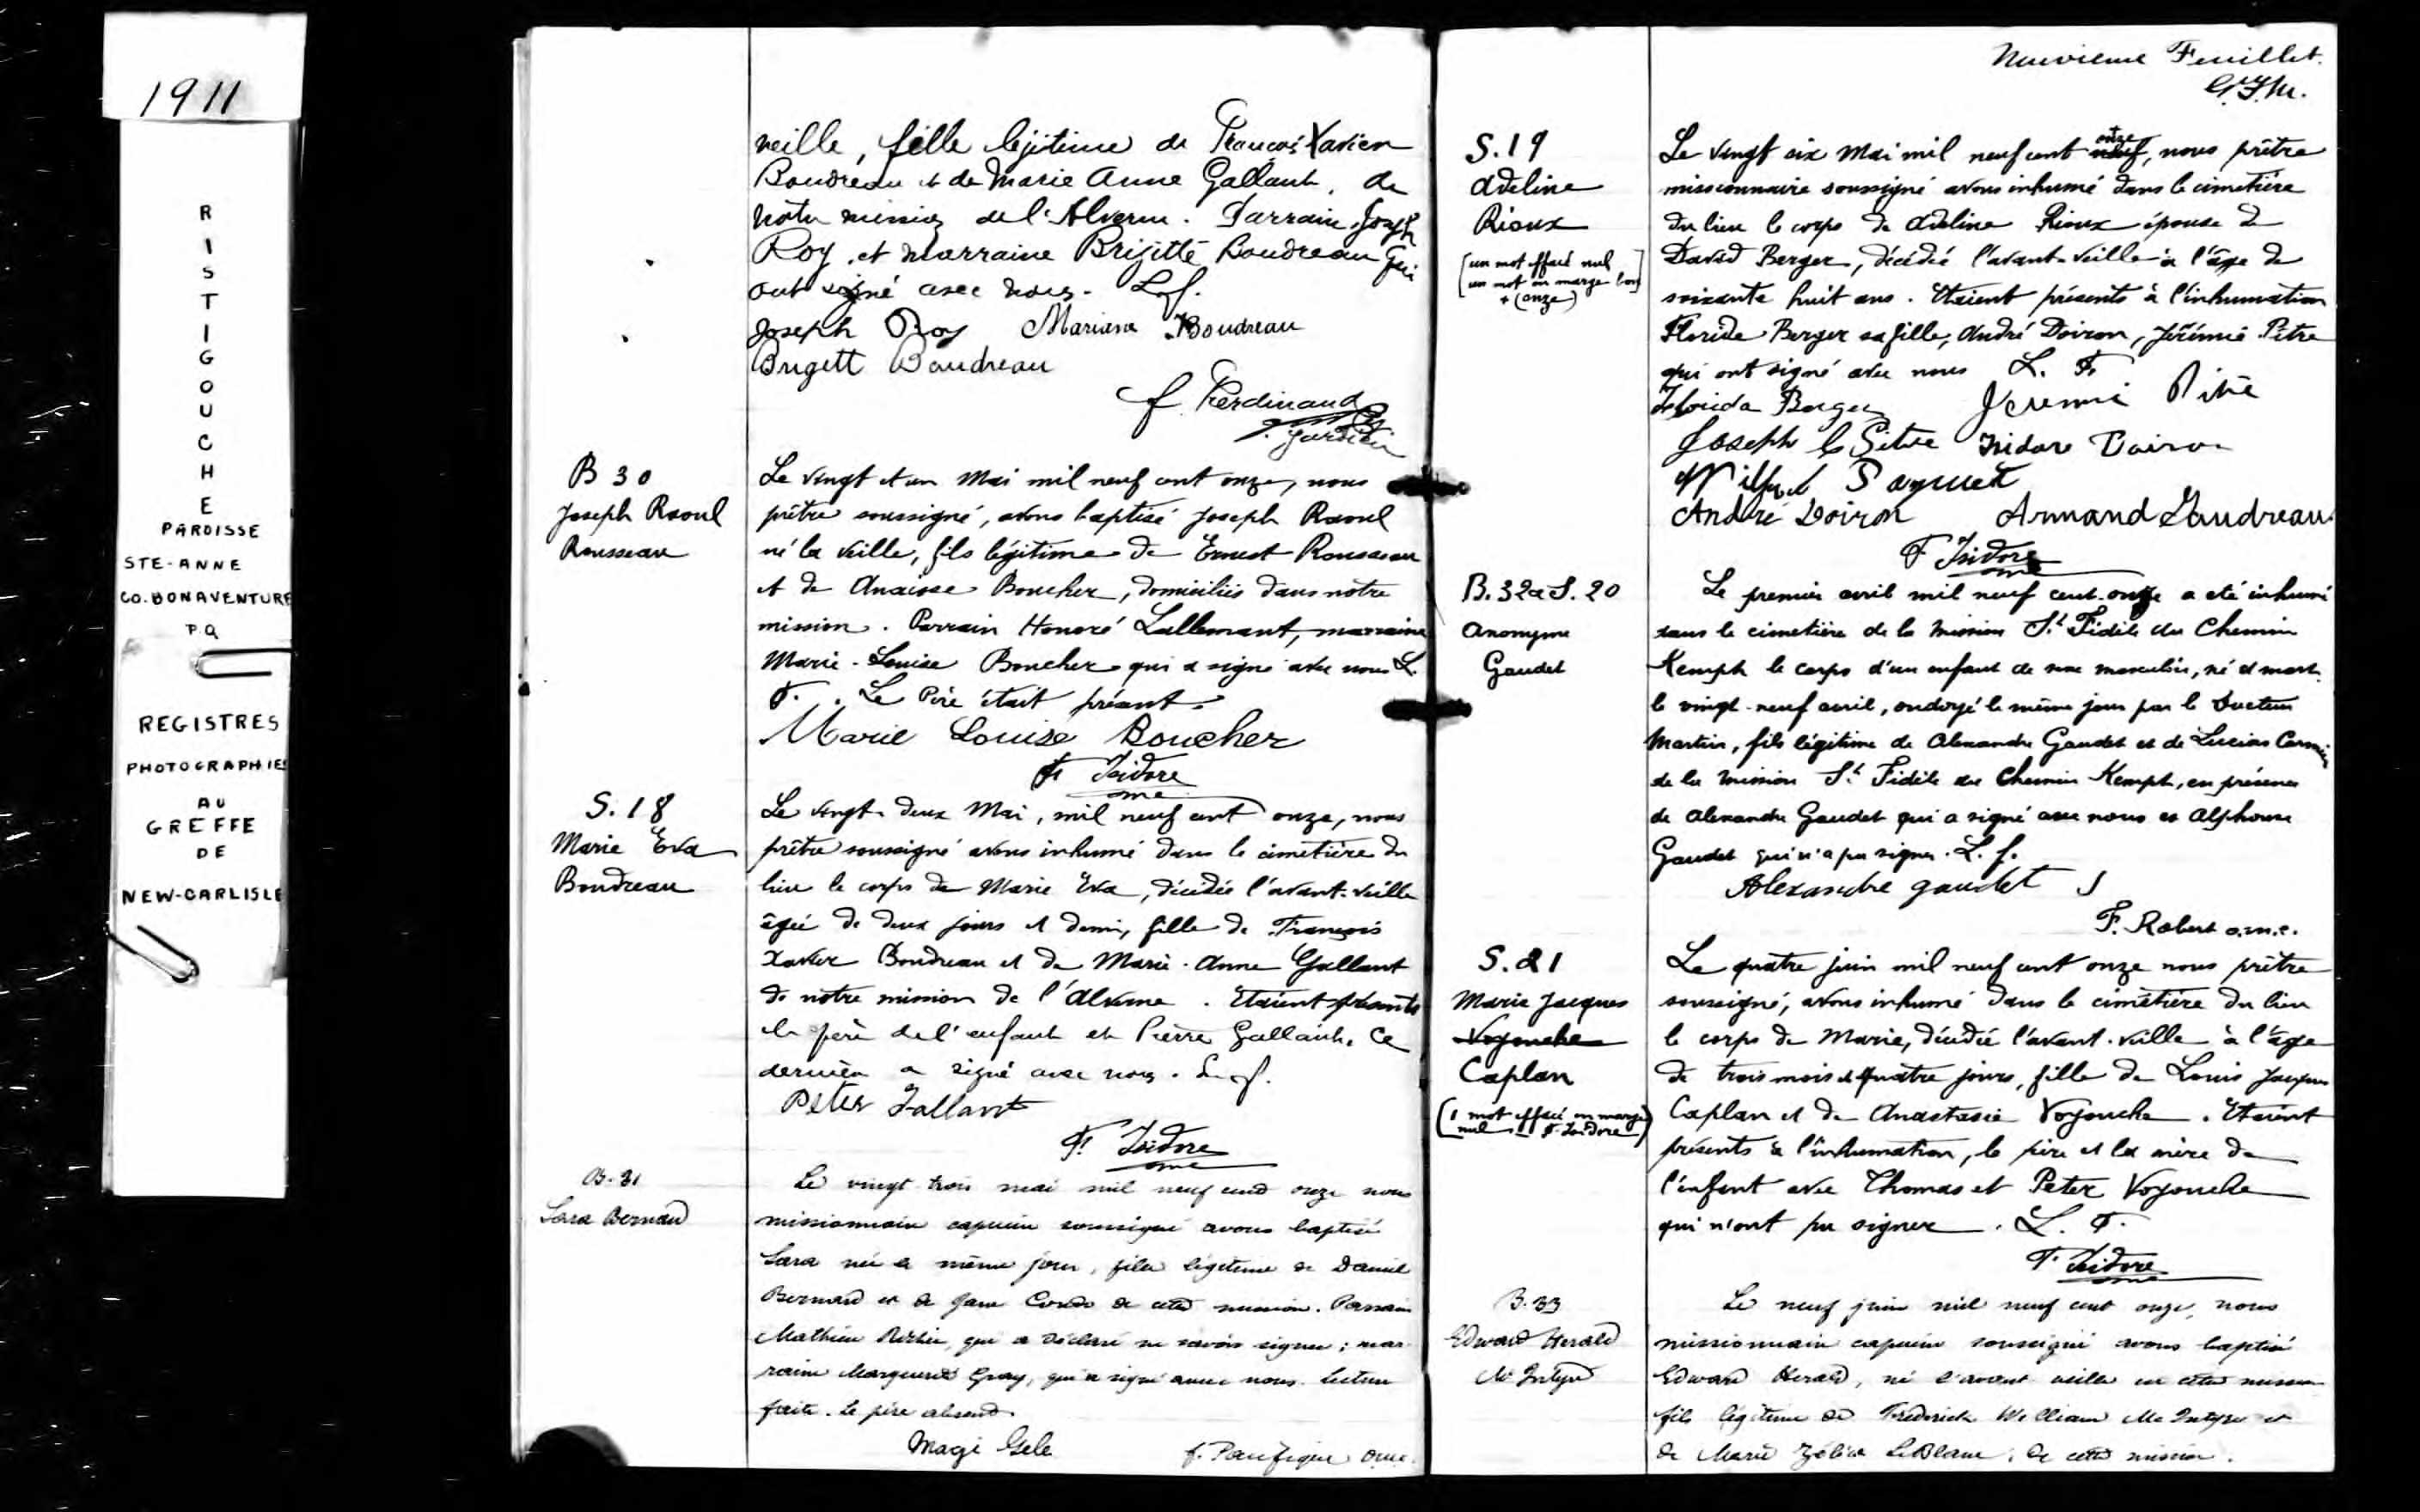 1911
R
I
S
T
I
G
O
U
C
H
E
PAROISSE
STE-ANNE
CO. BONAVENTURE
P.Q
REGISTRES
PHOTOGRAPHIES
AU
GREFFE
DE
NEW-CARLISLE
veille, fille légitime de François Xavier
Boudreau et de Marie Anne Gallant, de
notre mission de l'Alverne. Parrain Joseph
Roy, et Marraine Brigitte Boudreau qui
ont signé avec nous. L.f.
Joseph Roy Mariane Boudreau
Brigett Boudreau
f. Ferdinand
B 30
Joseph Raoul
Rousseau
Le vingt et un Mai mil neuf cent onze, nous
prêtre soussigné, avons baptisé Joseph Raoul
né la veille, fils légitime de Ernest Rousseau
et de Anaisse Boucher, domiciliés dans notre
mission. Parrain Honoré Lallemant, marraine
Marie-Louise Boucher qui a signé avec nous L.
F. . Le Père était présent.
Marie Louise Boucher
F. Isidore
omc
S. 18
Marie Eva
Boudreau
Le vingt-deux Mai, mil neuf cent onze, nous
prêtre soussigné avons inhumé dans le cimetière du
lieu le corps de Marie Eva, décédée l'avant-veille
âgée de deux jours et demi, fille de François
Xavier Boudreau et de Marie-Anne Gallant
de notre mission de l'Alverne. Etaient présents
le père de l'enfant et Pierre Gallant. Ce
dernier a signé avec nous. L.f.
Peter Gallant
F. Isidore
omc
B. 31
Sara Bernard
Le vingt trois mai mil neuf cent onze nous
missionnaire capucin soussigné avons baptisé
Sara née le même jour, fille légitime de Daniel
Bernard et de Jane Condo de cette mission. Parrain
Mathieu, qui a déclaré ne savoir signer; mar-
raine Marguerite Gray, qui a signé avec nous. Lecture
faite. Le père absent.
Magi Gele f. Pacifique omc.
Neuvieme Feuillet.
S. 19
Adeline
Rioux
[un mot effacé nul
un mot en marge bon]
+ (onze)
Le vingt six Mai mil neuf cent neuf +onze, nous prêtre
missionnaire soussigné avons inhumé dans le cimetière
du lieu le corps de Adeline Rioux épouse de
David Berger, décédée l'avant-veille à l'âge de
soixante huit ans. Etaient présents à l'inhumation
Floride Berger sa fille, André Doiron, Jérémie Pitre
qui ont signé avec nous L. F.
Florida Berger Jeremi Pitre
Joseph Pitre Isidore Doiron
Wilfred Paquet
André Doiron Armand Gaudreau
F. Isidore
omc
B. 32 et S. 20
Anonyme
Gaudet
Le premier avril mil neuf cent onze a été inhumé
dans le cimetière de la mission St Fidèle du Chemin
Kemph le corps d'un enfant de sexe masculin, né et mort
le vingt-neuf avril, ondoyé le même jour par le Docteur
Martin, fils légitime de Alexandre Gaudet et de
de la mission St Fidèle du Chemin Kempt, en présence
de Alexandre Gaudet qui a signé avec nous et Alphonse
Gaudet qui n'a pu signer. L. f.
Alexandre gaudet
F. Robert o.m.c.
S. 21
Marie Jacques
Vogouche
Caplan
(1 mot effacé en marge
nul F. Isidore)
Le quatre juin mil neuf cent onze nous prêtre
soussigné, avons inhumé dans le cimetière du lieu
le corps de Marie, décédée l'avant-veille à l'âge
de trois mois et quatre jours, fille de Louis Jacques
Caplan et de Anastasie Vogouche. Etaient
présents à l'inhumation, le père et la mère de
l'enfant avec Thomas et Peter Vogouche
qui n'ont pu signer. L. F.
F. Isidore
omc
B. 33
Edward Herald
Mc Intyre
Le neuf juin mil neuf cent onze, nous
missionnaire capucin soussigné avons baptisé
Edward Herald, né l'avant veille en cette mission
fils légitime de Frederick William Mc Intyre et
de Marie Zélica LeBlanc, de cette mission.